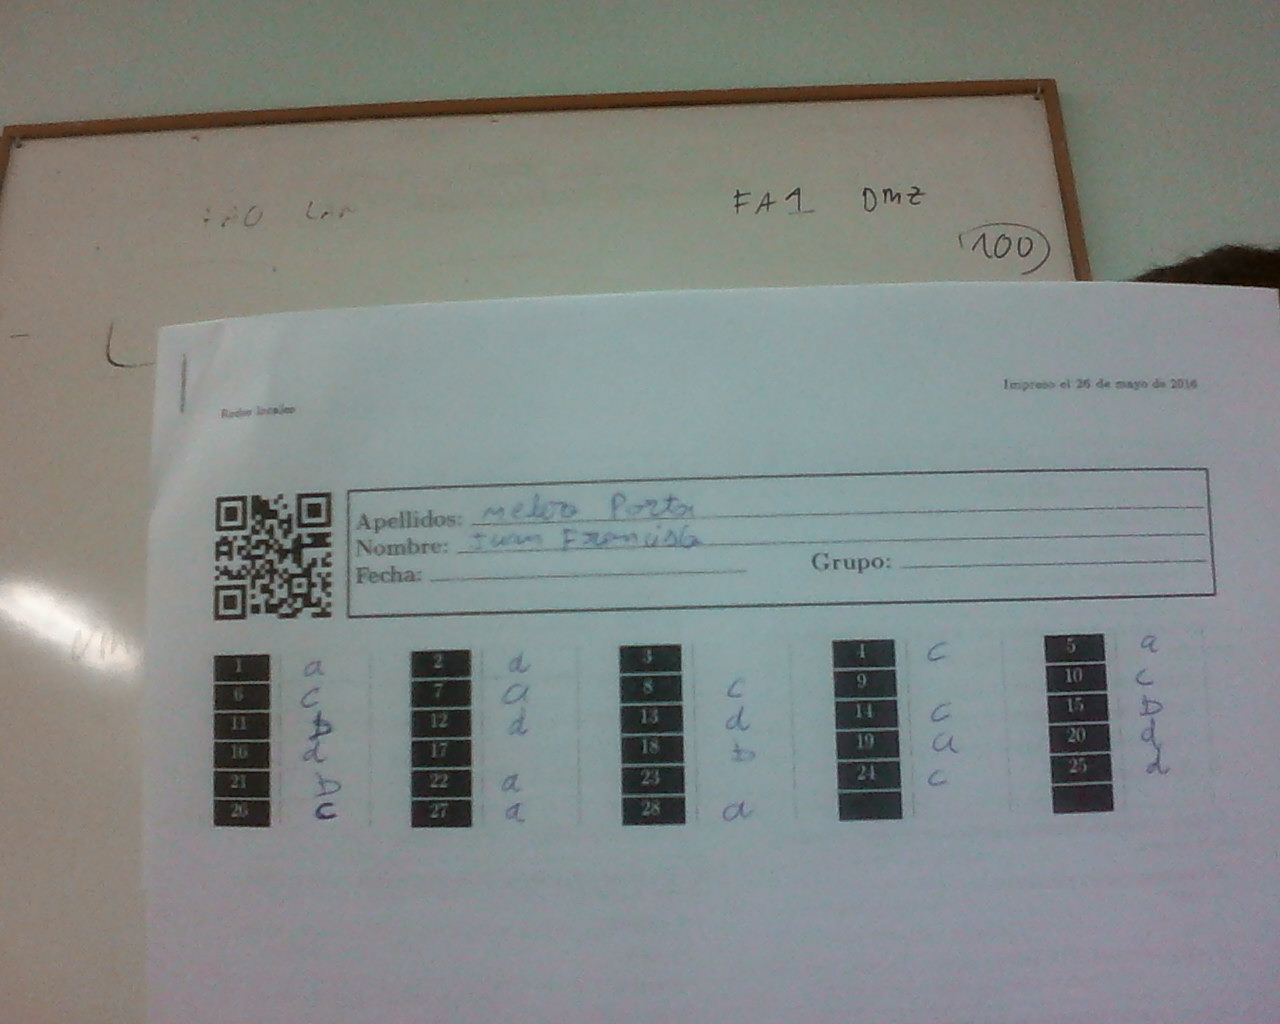 FA1 DMZ
100
Redes locales
Impreso el 26 de mayo de 2016
Apellidos: Porta
Nombre: Juan Francisco
Fecha: Grupo:
1 a 2 d 3 4 c 5 a
6 c 7 a 8 c 9 10 c
11 b 12 d 13 d 14 c 15 b
16 d 17 18 b 19 a 20 d
21 b 22 a 23 24 c 25 d
26 c 27 a 28 a